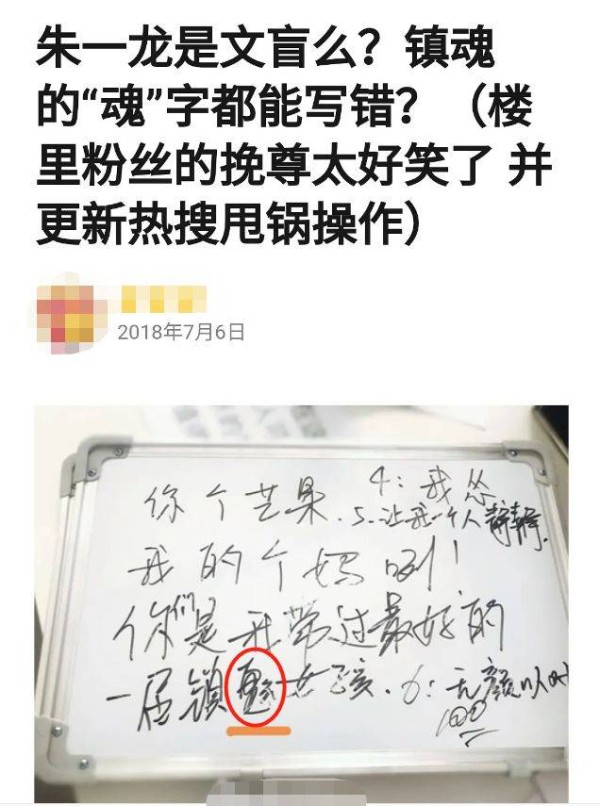 朱一龙是文盲么？镇魂
的“魂”字都能写错？（楼
里粉丝的挽尊太好笑了 并
更新热搜甩锅操作）
2018年7月6日
你个芒果. 4：我怂
5.让我一个人静静.
我的个妈咧!
你们是我带过最好的
一届镇 女孩. 6：无颜以对
100